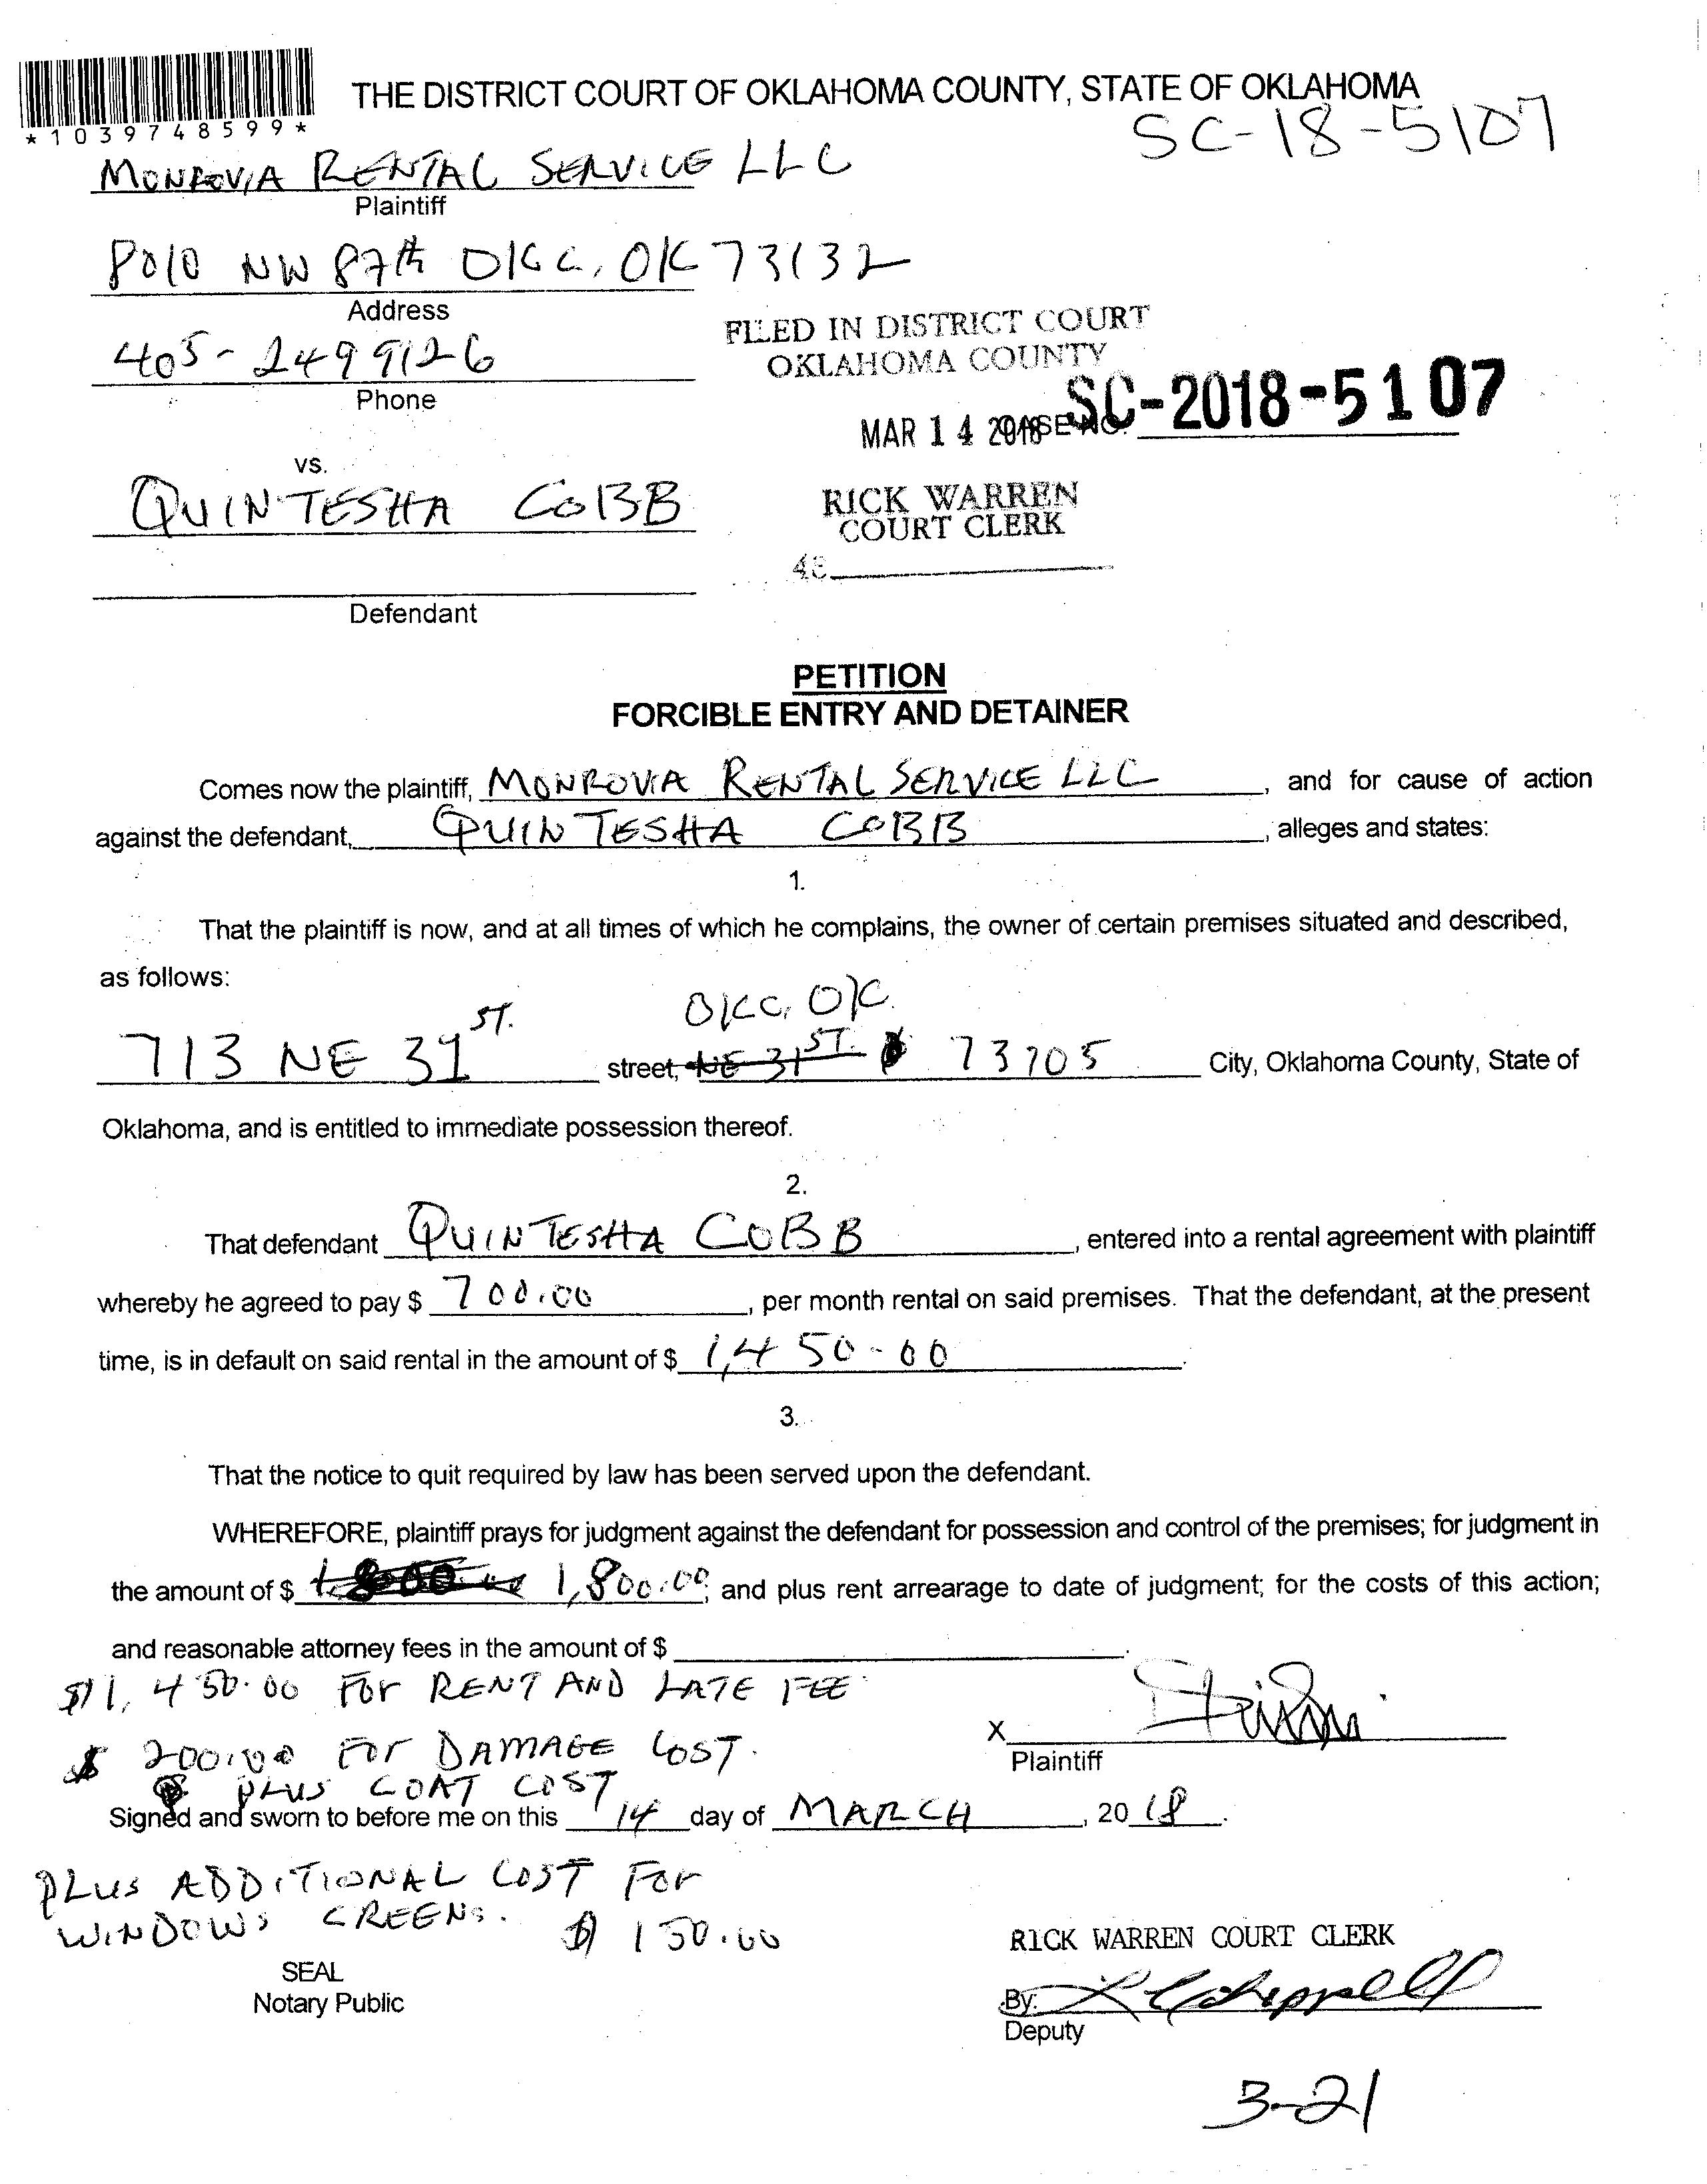 *1039748599*
THE DISTRICT COURT OF OKLAHOMA COUNTY, STATE OF OKLAHOMA
SC-18-5107
MONROVIA RENTAL SERVICE LLC
Plaintiff
8010 NW 87th OKC, OK 73132
Address
405-249 9126
Phone
FILED IN DISTRICT COURT
OKLAHOMA COUNTY
MAR 14 2018 CASE NO. SC-2018-5107
vs.
QUINTESHA COBB
RICK WARREN
COURT CLERK
48
Defendant
PETITION
FORCIBLE ENTRY AND DETAINER
Comes now the plaintiff, MONROVIA RENTAL SERVICE LLC, and for cause of action
against the defendant, QUINTESHA COBB, alleges and states:
1.
That the plaintiff is now, and at all times of which he complains, the owner of certain premises situated and described,
as follows:
OKC, OK.
713 NE 31 ST. street, NE 31 ST. 73105 City, Oklahoma County, State of
Oklahoma, and is entitled to immediate possession thereof.
2.
That defendant QUINTESHA COBB, entered into a rental agreement with plaintiff
whereby he agreed to pay $ 700.00, per month rental on said premises. That the defendant, at the present
time, is in default on said rental in the amount of $ 1,450-00.
3.
That the notice to quit required by law has been served upon the defendant.
WHEREFORE, plaintiff prays for judgment against the defendant for possession and control of the premises; for judgment in
the amount of $ 1,800.00; and plus rent arrearage to date of judgment; for the costs of this action;
and reasonable attorney fees in the amount of $ .
$1,450.00 FOR RENT AND LATE FEE
$ 200.00 FOR DAMAGE COST.
PLUS COAT COST
X
Plaintiff
Signed and sworn to before me on this 14 day of MARCH, 2018.
PLUS ADDITIONAL COST FOR
WINDOWS CREENS. $ 150.00
SEAL
Notary Public
RICK WARREN COURT CLERK
By:
Deputy
3-21